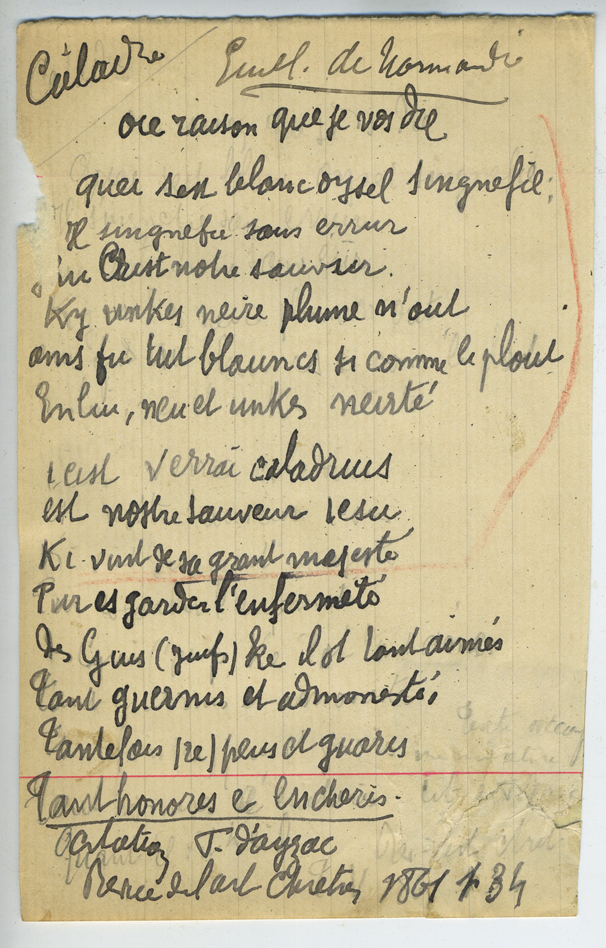 Caladre
Guill. de Normandie
ore raison que je vos die
quei sest blanc oysel singnefie:
Il singnefie sans errur
Crist notre sauveur.
Ky unkes neire plume n'out
ains fu tut blauncs si comme le plout
En lui, neu et unkes neirté
icest verrai caladrius
est nostre sauveur iesu
Ki vint de sa grant majesté
Pur esgarder l'enfermeté
des Gius (juifs) ke il ot tant aimés
Tant guernis et admonestés
Tantefois (re)peus et guaris
Tant honores e encheris.
Citation F. d'ayzac
Revue de l'art Chrétien 1861 p 34